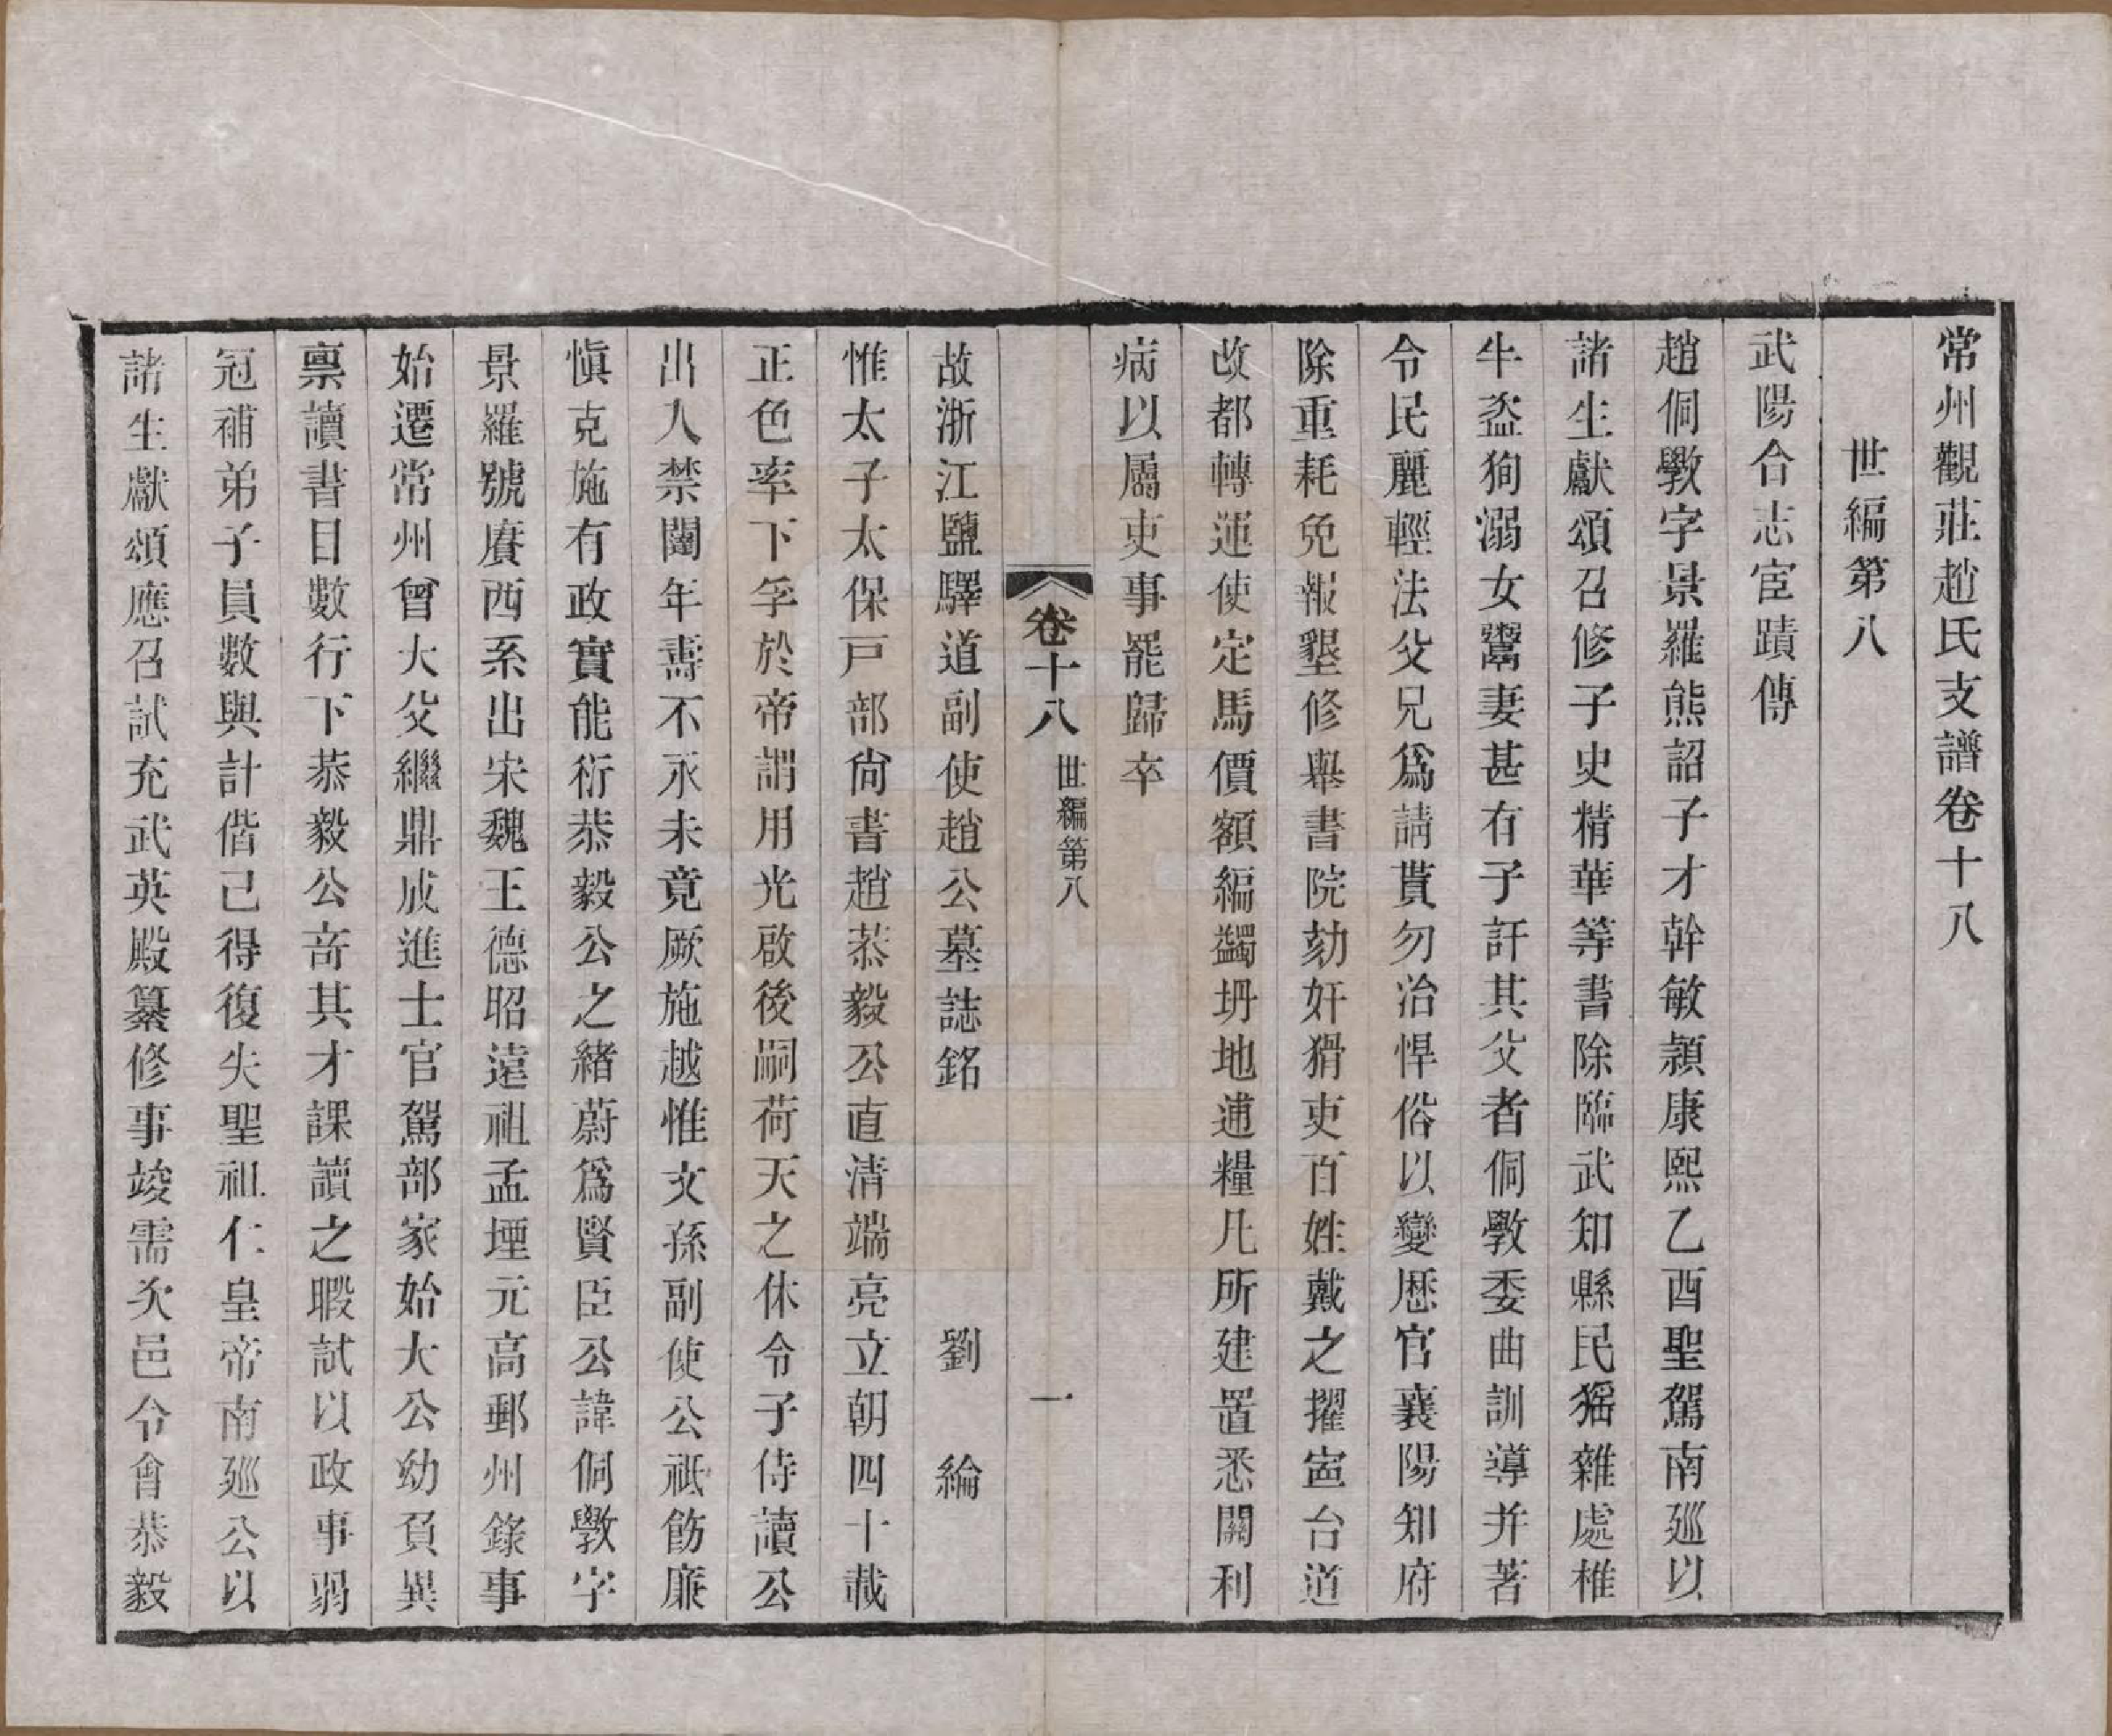 常州觀莊趙氏支譜卷十八
世編第八
武陽合志宦蹟傳
趙侗斆字景羅熊詔子才幹敏穎康熙乙酉聖駕南廵以
諸生獻頌召修子史精華等書除臨武知縣民猺雜處椎
牛盜狥溺女鬻妻甚有子訐其父者侗斆委曲訓導幷著
令民麗輕法父兄爲請貰勿治悍俗以變歷官襄陽知府
除重耗免報墾修舉書院劾奸猾吏百姓戴之擢寍台道
改都轉運使定馬價額編蠲坍地逋糧凡所建置悉關利
病以屬吏事罷歸卒
卷十八 世編第八 一
故浙江鹽驛道副使趙公墓誌銘 劉綸
惟太子太保戸部尙書趙恭毅公直清端亮立朝四十載
正色率下孚於帝謂用光啟後嗣荷天之休令子侍讀公
出入禁闥年壽不永未竟厥施越惟文孫副使公祇飭廉
愼克施有政實能衍恭毅公之緒蔚爲賢臣公諱侗斆字
景羅號賡西系出宋魏王德昭遠祖孟堙元高郵州錄事
始遷常州曾大父繼鼎成進士官駕部家始大公幼負異
禀讀書目數行下恭毅公奇其才課讀之暇試以政事弱
冠補弟子員數與計偕已得復失聖祖仁皇帝南廵公以
諸生獻頌應召試充武英殿纂修事竣需次邑令會恭毅